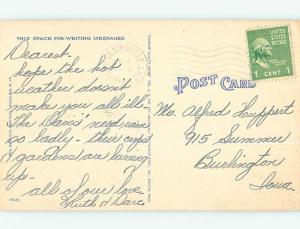 THIS SPACE FOR WRITING MESSAGES
Dearest
hope the hot
weather doesn't
make you all ill.
The need rain
so badly - their crops
& gardens are burning
up -
all of our love
Ruth & Dave
POST CARD
UNITED STATES POSTAGE
1 CENT 1
Mr. Alfred Huppert
915 Summer
Burlington
Iowa